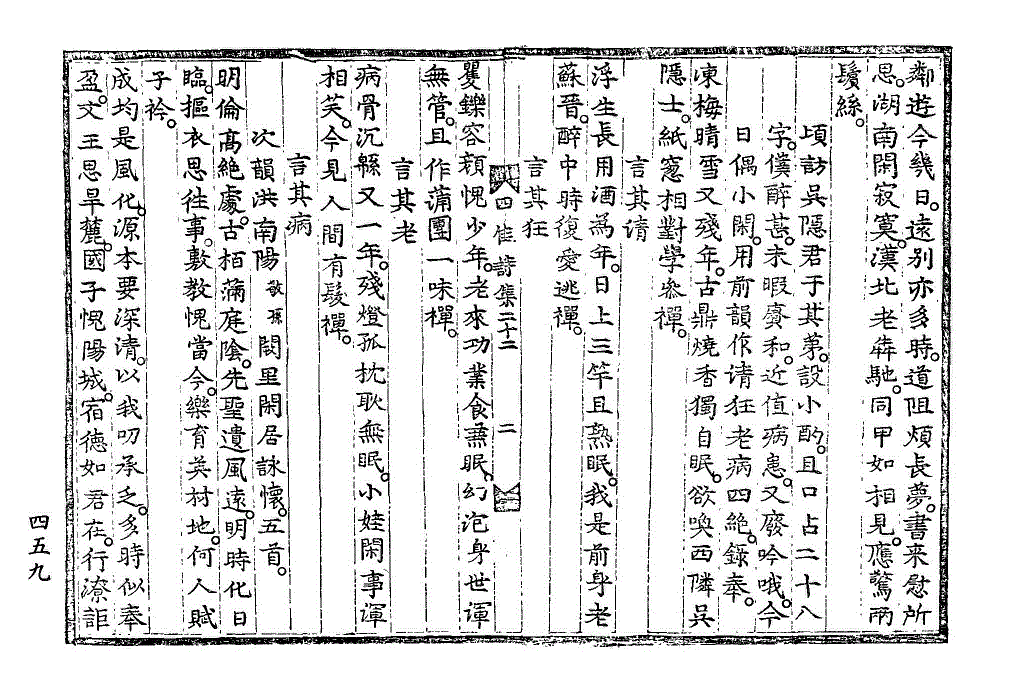 鄰遊今幾日。遠别亦多時。道阻煩長夢。書来慰所
思。湖南閑寂寞。漢北老犇馳。同甲如相見。應驚兩
鬢絲。
頃訪吳隱君于其第。設小酌。且口占二十八
字。僕醉甚。未暇賡和。近值病患。又廢吟哦。今
日偶小閑。用前韻作请狂老病四絶。録奉。
凍梅晴雪又殘年。古鼎燒香獨自眠。欲喚西隣吳
隱士。紙窓相對學叅禪。
言其请
浮生長用酒為年。日上三竿且熟眠。我是前身老
蘇晋。醉中時復愛逃禪。
言其狂
四佳詩集二十二 二
矍鑠容顔愧少年。老來功業食兼眠。幻泡身世渾
無管。且作蒲團一味禪。
言其老
病骨沉緜又一年。殘燈孤枕耿無眠。小娃閑事渾
相笑。今見人間有髮禪。
言其病
次韻洪南陽敬孫閼里閑居詠懷。五首。
明倫髙絶處。古栢蒲庭陰。先聖遺風遠。明時化日
臨。摳衣思往事。敷教愧當今。樂育英材地。何人賦
子衿。
成均是風化。源本要深清。以我叨承乏。多時似奉
盈。文王思旱麓。國子愧陽城。宿德如君在。行潦詎
四五九